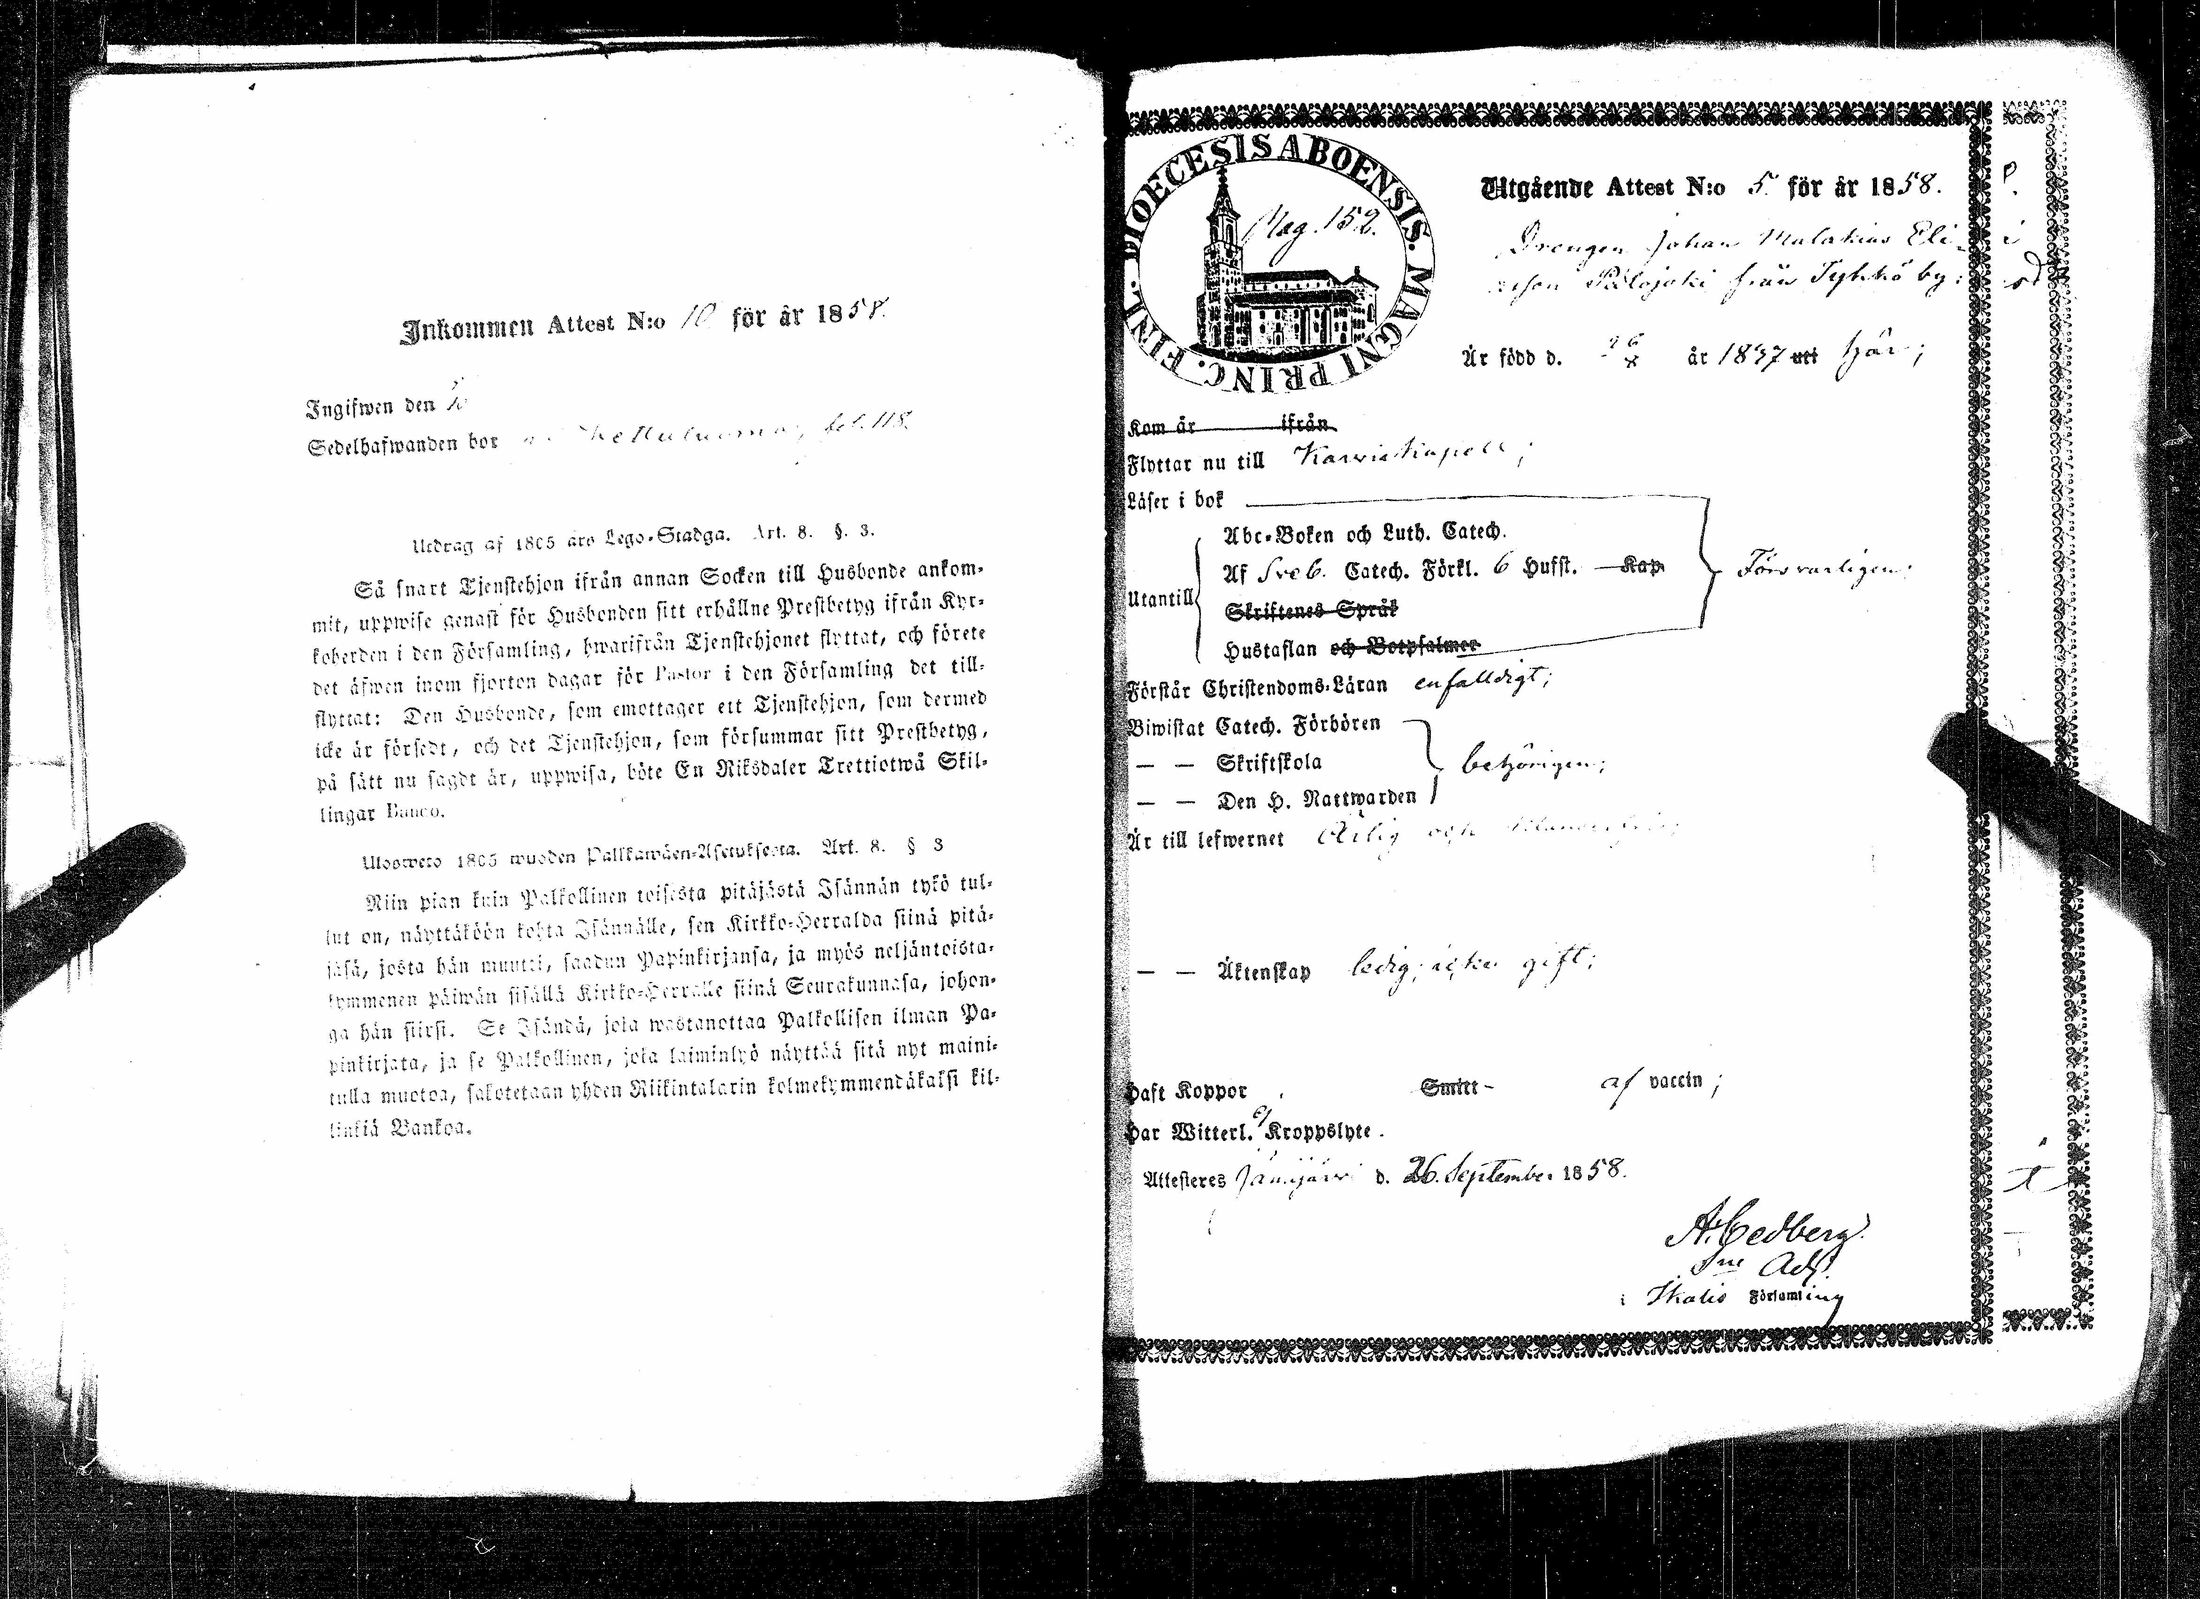 Inkommen Attest N:o 10 för år 1858.
Ingifwen den
Sedelhafwanden bor fol. 118.
Utdrag af 1805 års Lego-Stadga. Art. 8. §. 3.
Så snart Tjenstehjon ifrån annan Socken till Husbonde ankom-
mit, uppwise genast för Husbonden sitt erhållne Prestbetyg ifrån Kyr-
koherden i den Församling, hwarifrån Tjenstehjonet flyttat, och förete
det äfwen inom fjorton dagar för Pastor i den Församling det till-
flyttat: Den Husbonde, som emottager ett Tjenstehjon, som dermed
icke är försedt, och det Tjenstehjon, som försummar sitt Prestbetyg,
på sätt nu sagdt är, uppwisa, böte En Riksdaler Trettiotwå Skil-
lingar Banco.
Ulosweto 1805 wuoden Palkkawäen-Asetuksesta. Art. 8. § 3
Niin pian kuin Palkollinen toisesta pitäjästä Isännän tykö tul-
lut on, näyttäköön kohta Isännälle, sen Kirkko-Herralda siinä pitä-
jäsä, josta hän muutti, saadun Papinkirjansa, ja myös neljäntoista-
kymmenen päiwän sisällä Kirkko-Herralle siinä Seurakunnasa, johon-
ga hän siirsi. Se Isändä, joka wastanottaa Palkollisen ilman Pa-
pinkirjata, ja se Palkollinen, joka laiminlyö näyttää sitä nyt maini-
tulla muotoa, sakotetaan yhden Riikintalarin kolmekymmendäkaksi kil-
linkiä Bankoa.
DIOECESIS ABOENSIS. MAGNI PRINC. FINL.
Pag. 152.
Utgående Attest N:o 5. för år 1858.
Drengen Johan Malakias Eli-
från Tykkö by;
Är född d. 26/8 år 1837 uti här;
Kom år ifrån
Flyttar nu till Karvia Kapell;
Läser i bok
Abc-Boken och Luth. Catech.
Utantill Af Sveb. Catech. Förkl. 6 Hufst. Kap Försvarligen;
Skriftenes Språk
Hustaflan och Botpsalmer
Förstår Christendoms-Läran enfalldigt;
Biwistat Catech. Förhören
— — Skriftskola behörigen;
— — Den H. Nattwarden
Är till lefwernet Ärlig och
— — Äktenskap ledig; icke gift;
Haft Koppor Smitt- af vaccin;
Har Witterl. ej Kroppslyte.
Attesteres Jämijärvi d. 26. September 1858.
A. Cedberg.
Sne Adj.
i Ikalis Församling